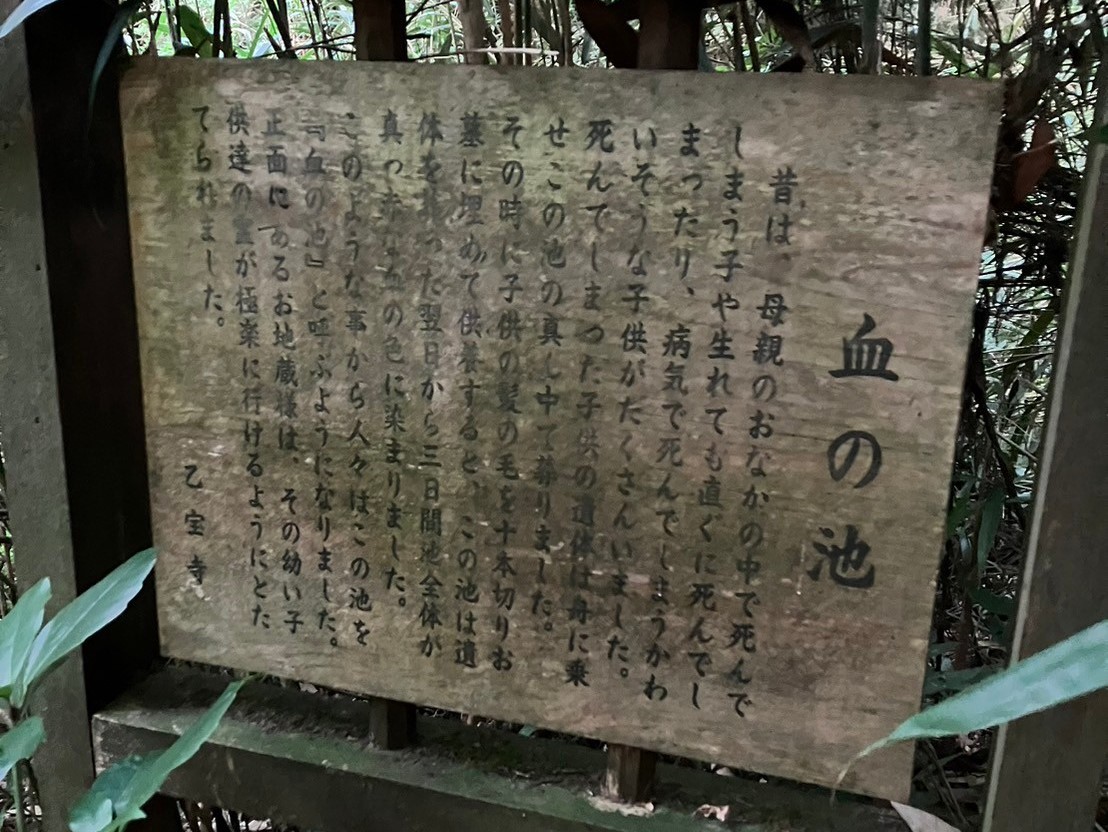 血の池
昔は、母親のおなかの中で死んで
しまう子や生れても直ぐに死んでし
まったり、病気で死んでしまうかわ
いそうな子供がたくさんいました。
死んでしまった子供の遺体は舟に乗
せこの池の真し中で葬りました。
その時に子供の髪の毛を十本切りお
墓に埋めて供養すると、この池は遺
体を葬った翌日から三日間池全体が
真っ赤な血の色に染まりました。
このような事から人々はこの池を
『血の池』と呼ぶようになりました。
正面にあるお地蔵様は、その幼い子
供達の霊が極楽に行けるようにとた
てられました。
乙宝寺